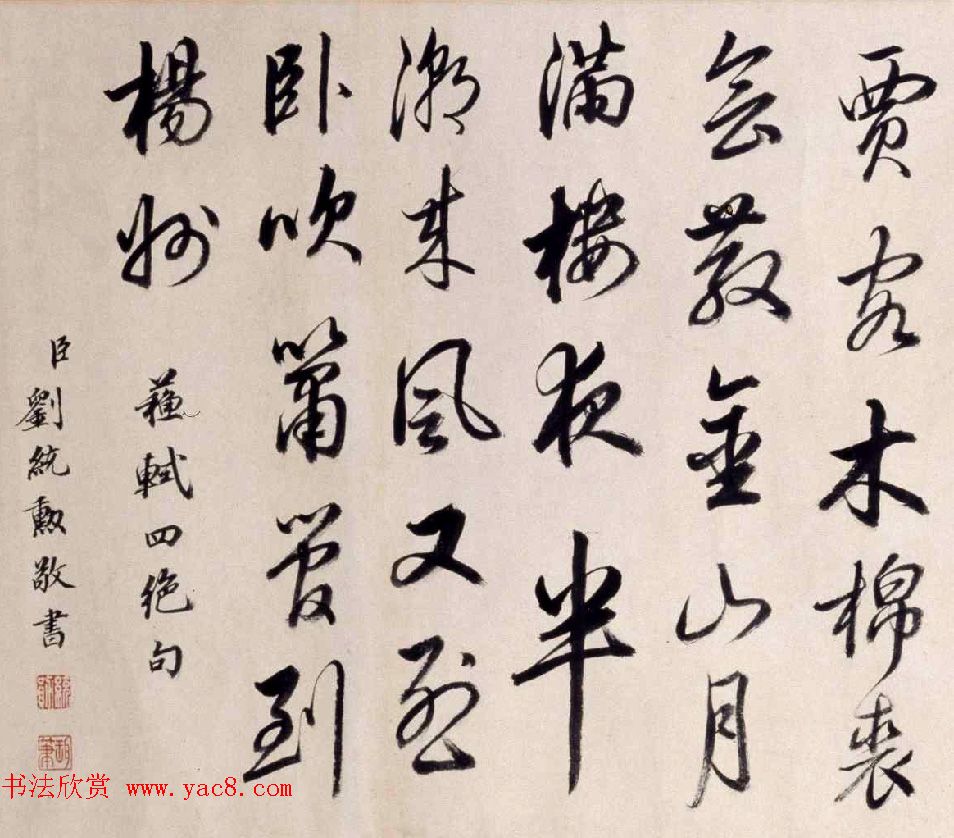 賈客木棉裘
會散金山月
滿樓夜半
潮來風又熟
臥吹簫管到
楊州
蘇軾四絕句
臣劉統勳敬書
书法欣赏 www.yac8.com